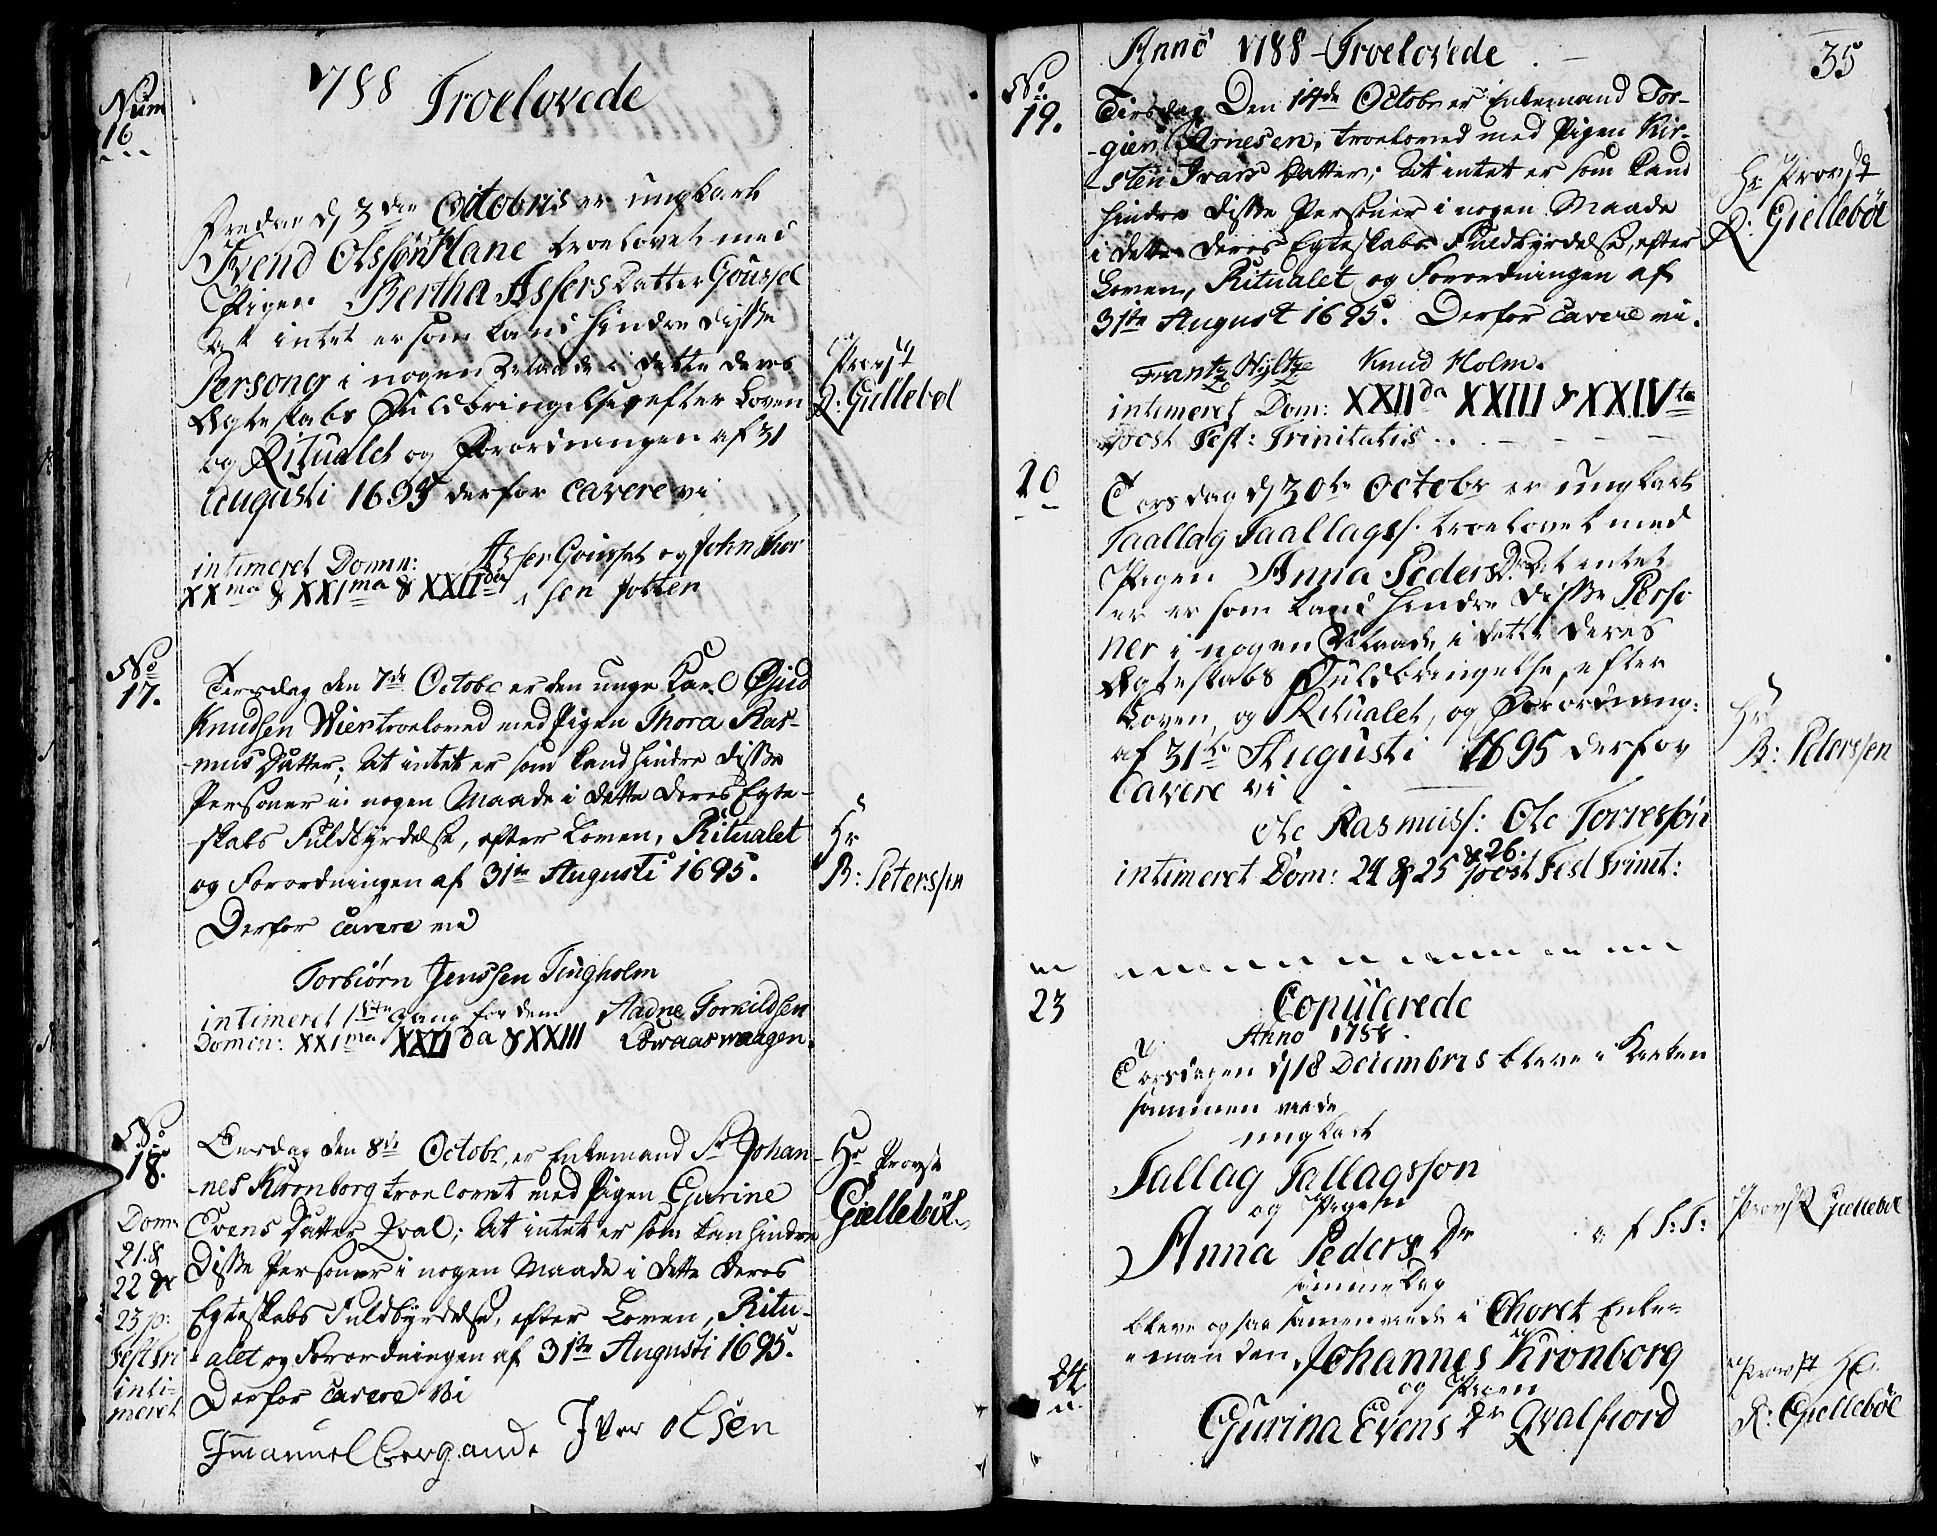 1788 Troelovede
Num
16
Fredag d 3die Octobris er ungkarl
Svend Olssøn Hane troelovet med
Pigen Bertha Assers Datter Goussel
At intet er som kand hindre disse
Persong i nogen Maade i dette deres
Ægteskabs Fuldbringelse, efter Loven
og Ritualet og Forordningen af 31
Augusti 1695 derfor cavere vi
Asser Goussel og John Thor
sen Jotten
intimeret Domin:
XXma & XXIma & XXIIda
Provst
R: Gielleböl
No
17.
Tirsdag den 7de Octobr er den unge Karl Gjud
Knudsen Wier troeloved med Pigen Thora Ras-
mus Datter; At intet er som kand hindre disse
Personer i nogen Maade i dette deres Egte-
skabs Fuldbyrdelse, efter Loven, Ritualet
og Forordningen af 31te Augusti 1695.
Derfor cavere vi
Torbiörn Jenssen Tingholm
intimeret 1ste Gang for dem Aadne Torkildsen
Domin: XXIma XXIIda & XXIII Aawaagen.
Hr
B: Peterssen
No
18.
Onsdag den 8de Octobr, er Enkemand Sr Johan-
nes Kronborg troelovet med Pigen Gurine
Evens Datter Qval; At intet er som kan hindre
Disse Personer i nogen Maade i dette deres
Egteskabs Fuldbyrdelse, efter Loven, Ritu-
alet og Forordningen af 31te Augusti 1695.
Derfor cavere Vi
Imanuel Bergande Iver olsen
Dom
21. &
22 &
23 p:
Fest Tri
inti-
meret
Hr Provst
Gielleböl
Anno 1788 Troelovede
35
No
19.
Tirsdag Den 14de Octobr er Enkemand Tor-
gier Arnesen, troeloved med Pigen Kir-
sten Ivars Datter; At intet er som kand
hindre disse Personer i nogen Maade
i dette deres Egteskabs Fuldbyrdelse, efter
Loven, Ritualet og Forordningen af
31te August 1695. Derfor cavere vi.
Frantz Hyltze Knud Holm.
intimeret Dom: XXIIda XXIII & XXIVta
post Fest: Trinitatis
Hr Provst
R: Gielleböl
20
Torsdag d 30te Octobr er ungkarl
Taallag Taallagss: troelovet med
Pigen Anna Peders Dr. At intet
er er som kand hindre disse Perso
ner i nogen Maade i dette deres
Ægteskabs Fuldbringelse, efter
Loven, og Ritualet, og Forordning:
af 31te Augusti 1695 derfor
Cavere vi
Ole Rasmuss: Ole Torressön
intimeret Dom: 24 & 25 & 26. post Fest Trinit:
Hr
B: Peterssen
23
Copulerede
Anno 1788.
Torsdagen d 18 Decembris bleve i Kirken
sammen viede
ungkarl
Tallag Tallagsson
og Pigen
Anna Peders Dr af S:T:
Provst Gielleböl
samme Dag
bleve og saa sammenviede i Choret Enke-
manden Johannes Kronborg
og Pigen
24
Gurina Evens Dr Qvalfiord
Provst Hr.
R: Gielleböl